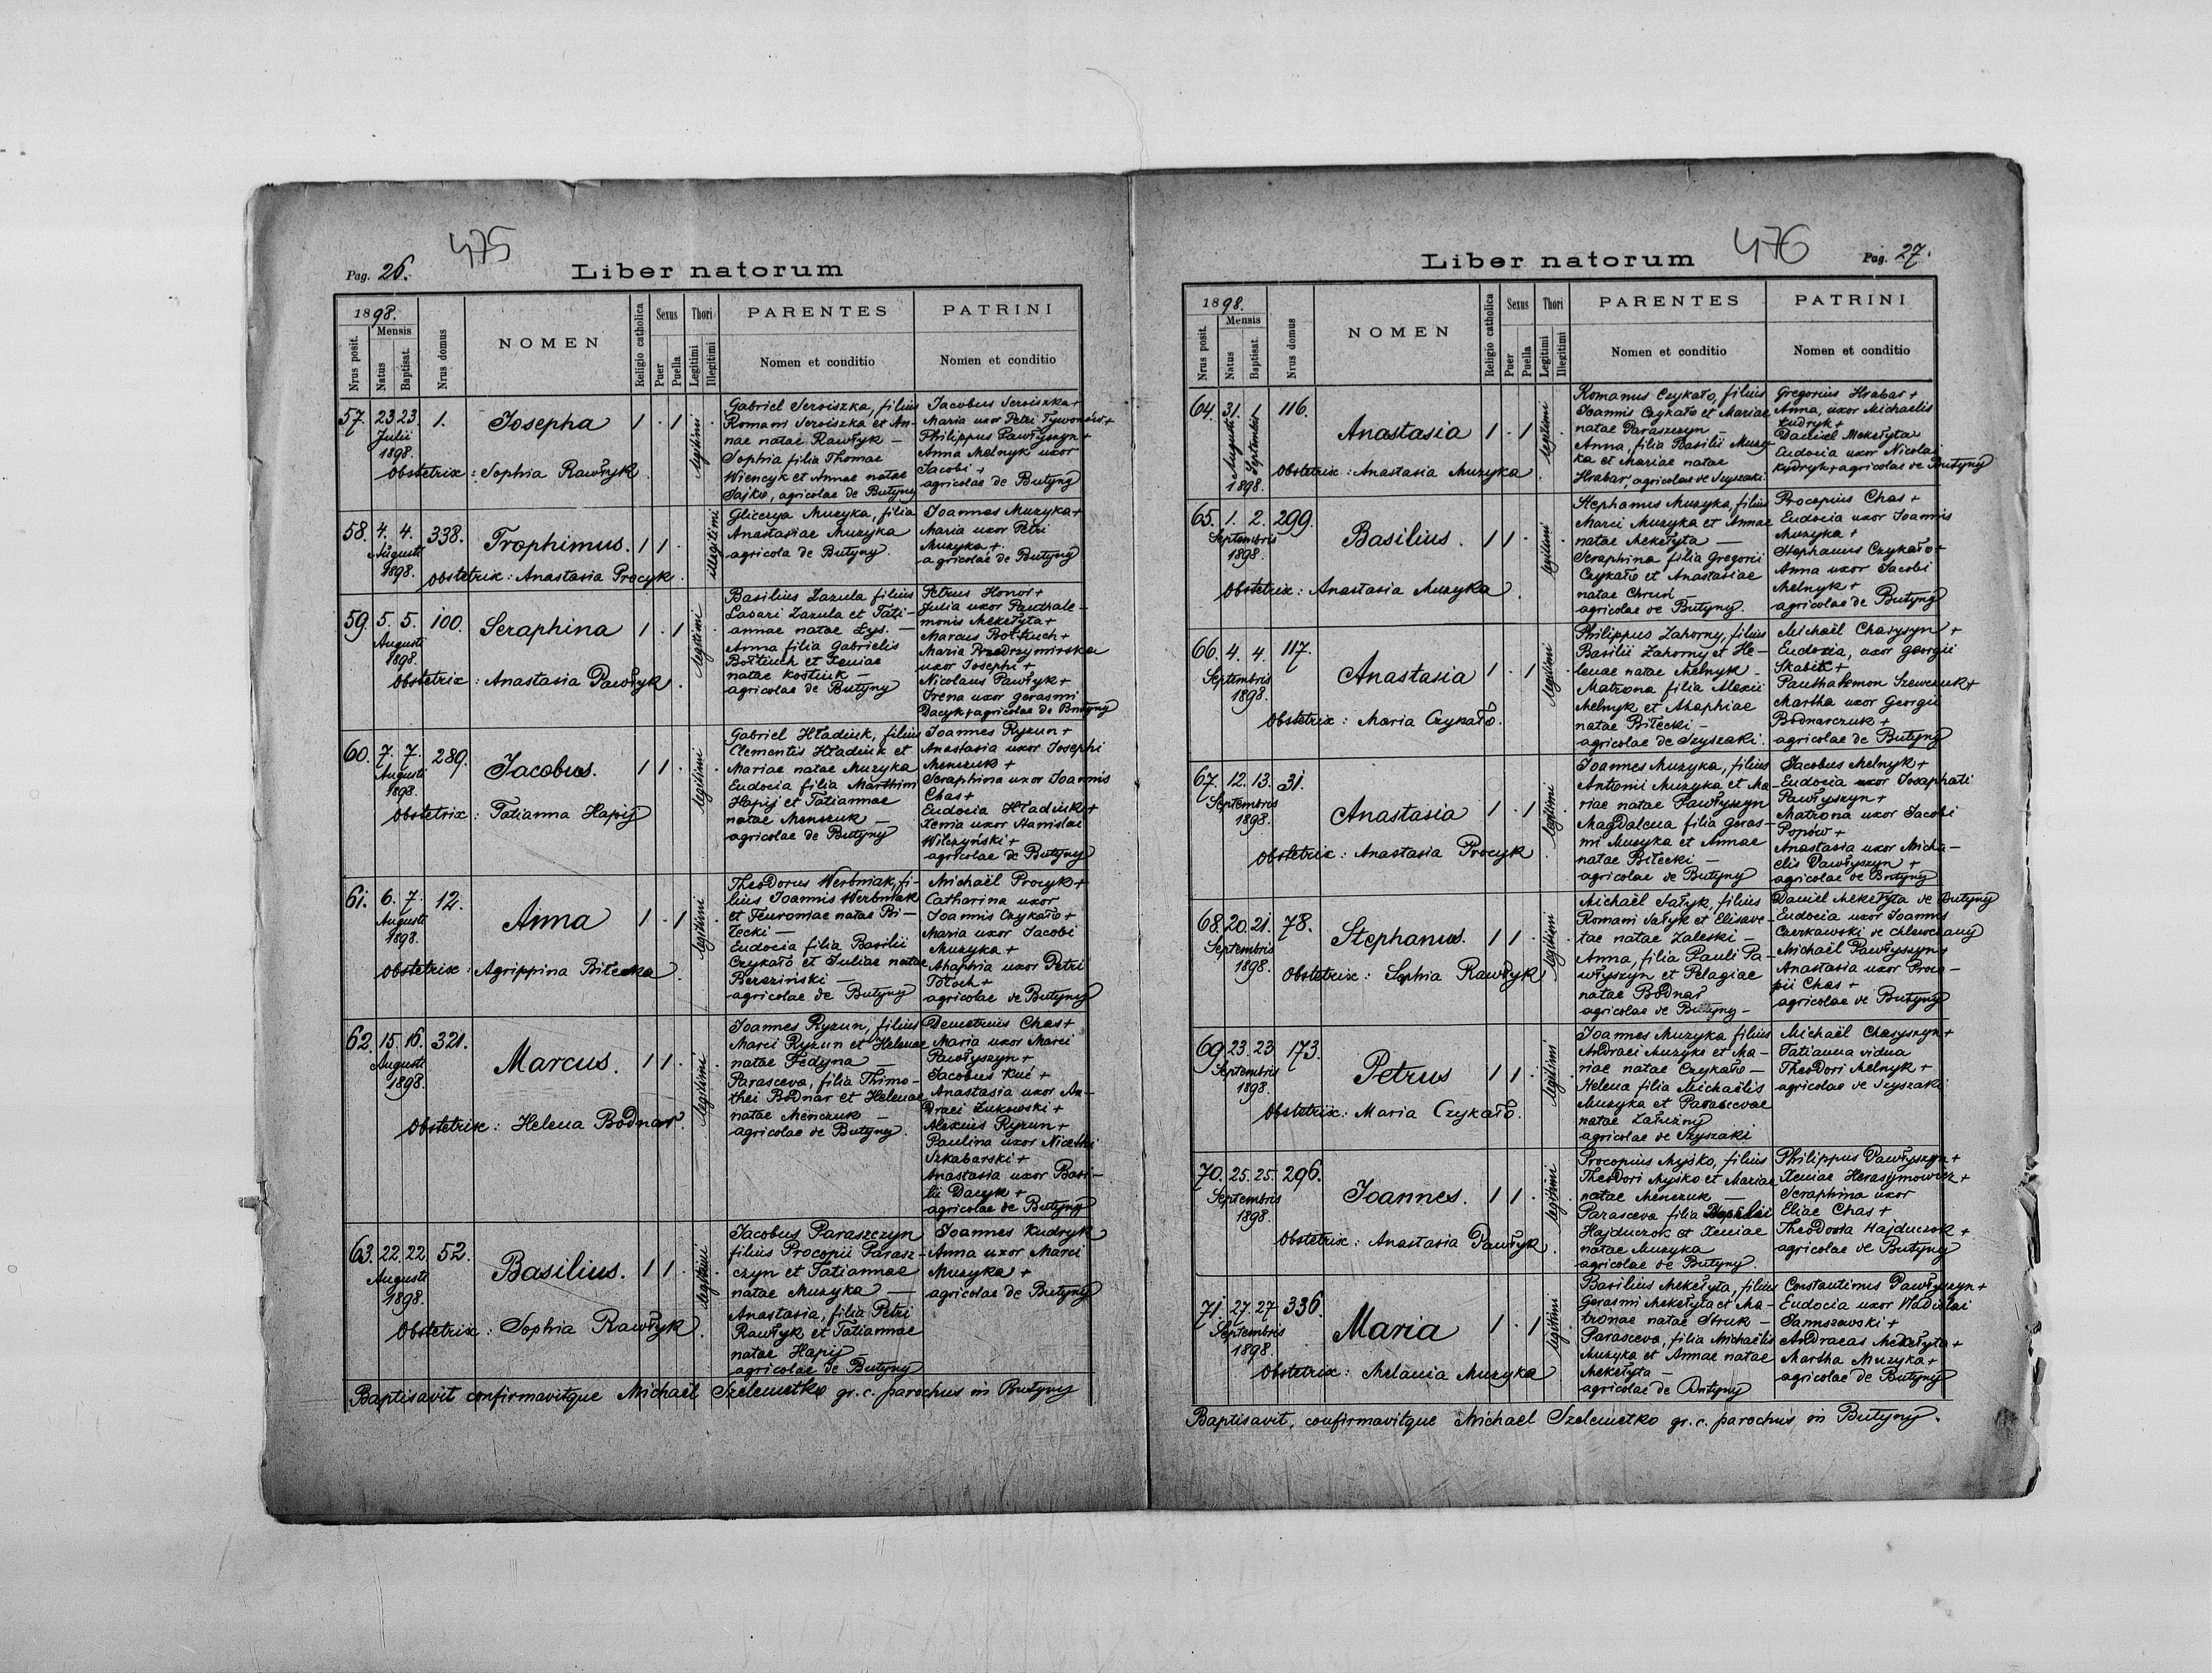 475
Pag. 26.
Liber natorum
1898.
Nrus posit.
Mensis
Natus
Baptisat.
Nrus domus
NOMEN
Religio catholica
Sexus
Puer
Puella
Thori
Legitimi
Illegitimi
PARENTES
Nomen et conditio
PATRINI
Nomen et conditio
57. 23 23 1. Josepha 1 · 1 · legitimi
Julii
1898.
Obstetrix: Sophia Rawłyk
Gabriel Serwiszka, filius
Romani Serwiszka et An-
nae natae Rawłyk —
Sophia filia Thomae
Wiencyk et Annae natae
Sajko, agricolae de Butyny
Jacobus Serwiszka +
Maria uxor Petri Tywonów +
Philippus Pawłyszyn +
Anna Melnyk uxor
Jacobi +
agricolae de Butyny
58. 4. 4. 338. Trophimus. 1 1 · illegitimi
Augusti
1898.
Obstetrix: Anastasia Procyk.
Glicerya Muzyka, filia
Anastasiae Muzyka
agricola de Butyny.
Joannes Muzyka +
Maria uxor Petri
Muzyka +
agricolae de Butyny
59. 5. 5. 100. Seraphina 1 · 1 · legitimi
Augusti
1898.
Obstetrix: Anastasia Pawłyk.
Basilius Zazula filius
Lazari Zazula et Tati-
annae natae Łys. —
Anna filia Gabrielis
Bołtiuch et Xeniae
natae Kostiuk —
agricolae de Butyny
Petrus Honor +
Julia uxor Panthale-
monis Mekełyta +
Marcus Bołtiuch +
Maria Przedrzymirska
uxor Josephi +
Nicolaus Pawłyk +
Irena uxor Gerasmi
Dacyk + agricolae de Butyny
60. 7. 7. 289. Jacobus. 1 1 · legitimi
Augusti
1898.
Obstetrix: Tatianna Hapij
Gabriel Hładiuk, filius
Clementis Hładiuk et
Mariae natae Muzyka
Eudocia filia Marthini
Hapij et Tatiannae
natae Menczuk —
agricolae de Butyny
Joannes Ryzun +
Anastasia uxor Josephi
Menczuk +
Seraphina uxor Joannis
Chas +
Eudocia Hładiuk +
Xenia uxor Stanislai
Wilczyński +
agricolae de Butyny
61. 6. 7. 12. Anna 1 · 1 · legitimi
Augusti
1898.
Obstetrix: Agrippina Biłecka.
Theodorus Werbniak, fi-
lius Joannis Werbniak
et Feuroniae natae Bi-
łecki —
Eudocia filia Basilii
Czykało et Juliae natae
Bereziński —
agricolae de Butyny
Michaël Procyk +
Catharina uxor
Joannis Czykało +
Maria uxor Jacobi
Muzyka +
Ahaphia uxor Petri
Tłoch +
agricolae de Butyny
62. 15. 16. 321. Marcus. 1 1 · legitimi
Augusti
1898.
Obstetrix: Helena Bodnar.
Joannes Ryzun, filius
Marci Ryzun et Helenae
natae Fedyna —
Parasceva, filia Thimo-
thei Bodnar et Helenae
natae Menczuk —
agricolae de Butyny.
Demetrius Chas +
Maria uxor Marci
Pawłyszyn +
Jacobus Kuć +
Anastasia uxor An-
draei Żukowski +
Alexius Ryzun +
Paulina uxor Nicethi
Szkabarski +
Anastasia uxor Basi-
lii Dacyk +
agricolae de Butyny
63. 22. 22. 52. Basilius. 1 1 · legitimi
Augusti
1898.
Obstetrix: Sophia Rawłyk.
Jacobus Paraszczyn
filius Procopii Parasz-
czyn et Tatiannae
natae Muzyka —
Anastasia, filia Petri
Rawłyk et Tatiannae
natae Hapij —
agricolae de Butyny
Joannes Kudryk
Anna uxor Marci
Muzyka +
agricolae de Butyny
Baptisavit confirmavitque Michaël Szelemetko gr. c. parochus in Butyny
476
Pag. 27.
Liber natorum
1898.
Nrus posit.
Mensis
Natus
Baptisat.
Nrus domus
NOMEN
Religio catholica
Sexus
Puer
Puella
Thori
Legitimi
Illegitimi
PARENTES
Nomen et conditio
PATRINI
Nomen et conditio
64. 31. 1 116. Anastasia 1 · 1 legitimi
Augusti Septembris
1898.
Obstetrix: Anastasia Muzyka
Romanus Czykało, filius
Joannis Czykało et Mariae
natae Paraszczyn —
Anna, filia Basilii Muzy-
ka et Mariae natae
Hrabar, agricolae de Szyszaki
Gregorius Hrabar +
Anna, uxor Michaelis
Kudryk +
Daniel Mekełyta
Eudocia uxor Nicolai
Kydryk + agricolae de Butyny
65. 1. 2. 299. Basilius. 1 1 · legitimi
Septembris
1898.
Obstetrix: Anastasia Muzyka.
Stephanus Muzyka, filius
Marci Muzyka et Annae
natae Mekełyta —
Seraphina filia Gregorii
Czykało et Anastasiae
natae Chruń —
agricolae de Butyny.
Procopius Chas +
Eudocia uxor Joannis
Muzyka +
Stephanus Czykało +
Anna uxor Jacobi
Melnyk +
agricolae de Butyny
66. 4. 4. 117. Anastasia 1 · 1 legitimi
Septembris
1898.
Obstetrix: Maria Czykało.
Philippus Zahorny, filius
Basilii Zahorny et He-
lenae natae Melnyk —
Matrona filia Alexii
Melnyk et Ahaphiae
natae Biłecki —
agricolae de Szyszaki.
Michaël Charyszyn +
Eudoxia, uxor Georgii
Skabik +
Panthalemon Szewczuk +
Martha uxor Georgii
Bodnarczuk +
agricolae de Butyny
67. 12. 13. 31. Anastasia 1 · 1 legitimi
Septembris
1898.
Obstetrix: Anastasia Procyk
Joannes Muzyka, filius
Antonii Muzyka et Ma-
riae natae Pawłyszyn
Magdalena filia Geras-
mi Muzyka et Annae
natae Biłecki —
agricolae de Butyny
Jacobus Melnyk +
Eudocia uxor Josaphati
Pawłyszyn +
Matrona uxor Jacobi
Popów +
Anastasia uxor Micha-
elis Pawłyszyn +
agricolae de Butyny
68. 20. 21. 78. Stephanus. 1 1 · legitimi
Septembris
1898.
Obstetrix: Sophia Rawłyk
Michaël Sałyk, filius
Romani Sałyk et Elisave-
tae natae Zaleski —
Anna, filia Pauli Pa-
włyszyn et Pelagiae
natae Bodnar
agricolae de Butyny —
Daniel Mekełyta de Butyny
Eudocia uxor Joannis
Czerkawski de Chlewczany
Michaël Pawłyszyn +
Anastasia uxor Proco-
pii Chas +
agricolae de Butyny
69. 23. 23. 173. Petrus 1 1 · legitimi
Septembris
1898.
Obstetrix: Maria Czykało.
Joannes Muzyka filius
Andraei Muzyka et Ma-
riae natae Czykało —
Helena filia Michaëlis
Muzyka et Parascevae
natae Załużny
agricolae de Szyszaki
Michaël Charyszyn +
Tatianna vidua
Theodori Melnyk +
agricolae de Szyszaki
70. 25. 25. 296. Joannes. 1 1 · legitimi
Septembris
1898.
Obstetrix: Anastasia Pawłyk.
Procopius Myśko, filius
Theodori Myśko et Mariae
natae Menczuk —
Parasceva filia
Hajduczok et Xeniae
natae Muzyka
agricolae de Butyny.
Philippus Pawłyszyn +
Xeniae Herasymowicz +
Seraphina uxor
Eliae Chas +
Theodosia Hajduczok +
agricolae de Butyny
71. 27. 27. 336. Maria 1 · 1 legitimi
Septembris
1898.
Obstetrix: Melania Muzyka
Basilius Mekełyta, filius
Gerasmi Mekełyta et Ma-
tronae natae Struk —
Parasceva, filia Michaëlis
Muzyka et Annae natae
Mekełyta —
agricolae de Butyny
Constantinus Pawłyszyn +
Eudocia uxor Wladislai
Januszewski +
Andraeas Mekełyta +
Martha Muzyka +
agricolae de Butyny
Baptisavit, confirmavitque Michael Szelemetko gr. c. parochus in Butyny.